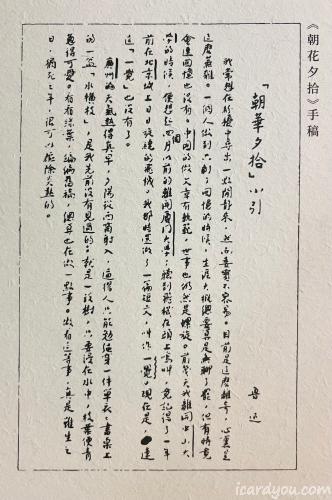 《朝花夕拾》手稿
「朝華夕拾」小引
魯迅
我常想在紛擾中尋出一點閒靜來，然而委實不容易。目前是這麼離奇，心裏是
這麼蕪雜。一個人做到只剩了回憶的時候，生涯大概總要算是無聊了罷，但有時竟
會連回憶也沒有。中國的做文章有軌範，世事也仍然是螺旋。前幾天我離開中山大
學的時候，便想起四個月以前的離開廈門大學；聽到飛機在頭上鳴叫，竟記得了一年
前在北京城上日日旋繞的飛機。我那時還做了一篇短文，叫做一覺。現在是，連
這「一覺」也沒有了。
廣州的天氣熱得真早，夕陽從西窗射入，逼得人只能勉強穿一件單衣。書桌上
的一盆「水橫枝」，是我先前沒有見過的：就是一段樹，只要浸在水中，枝葉便青
蔥得可愛。看看綠葉，編編舊稿，總算也在做一點事。做着這等事，真是雖生之
日，猶死之年，很可以驅除炎熱的。
icardyou.com